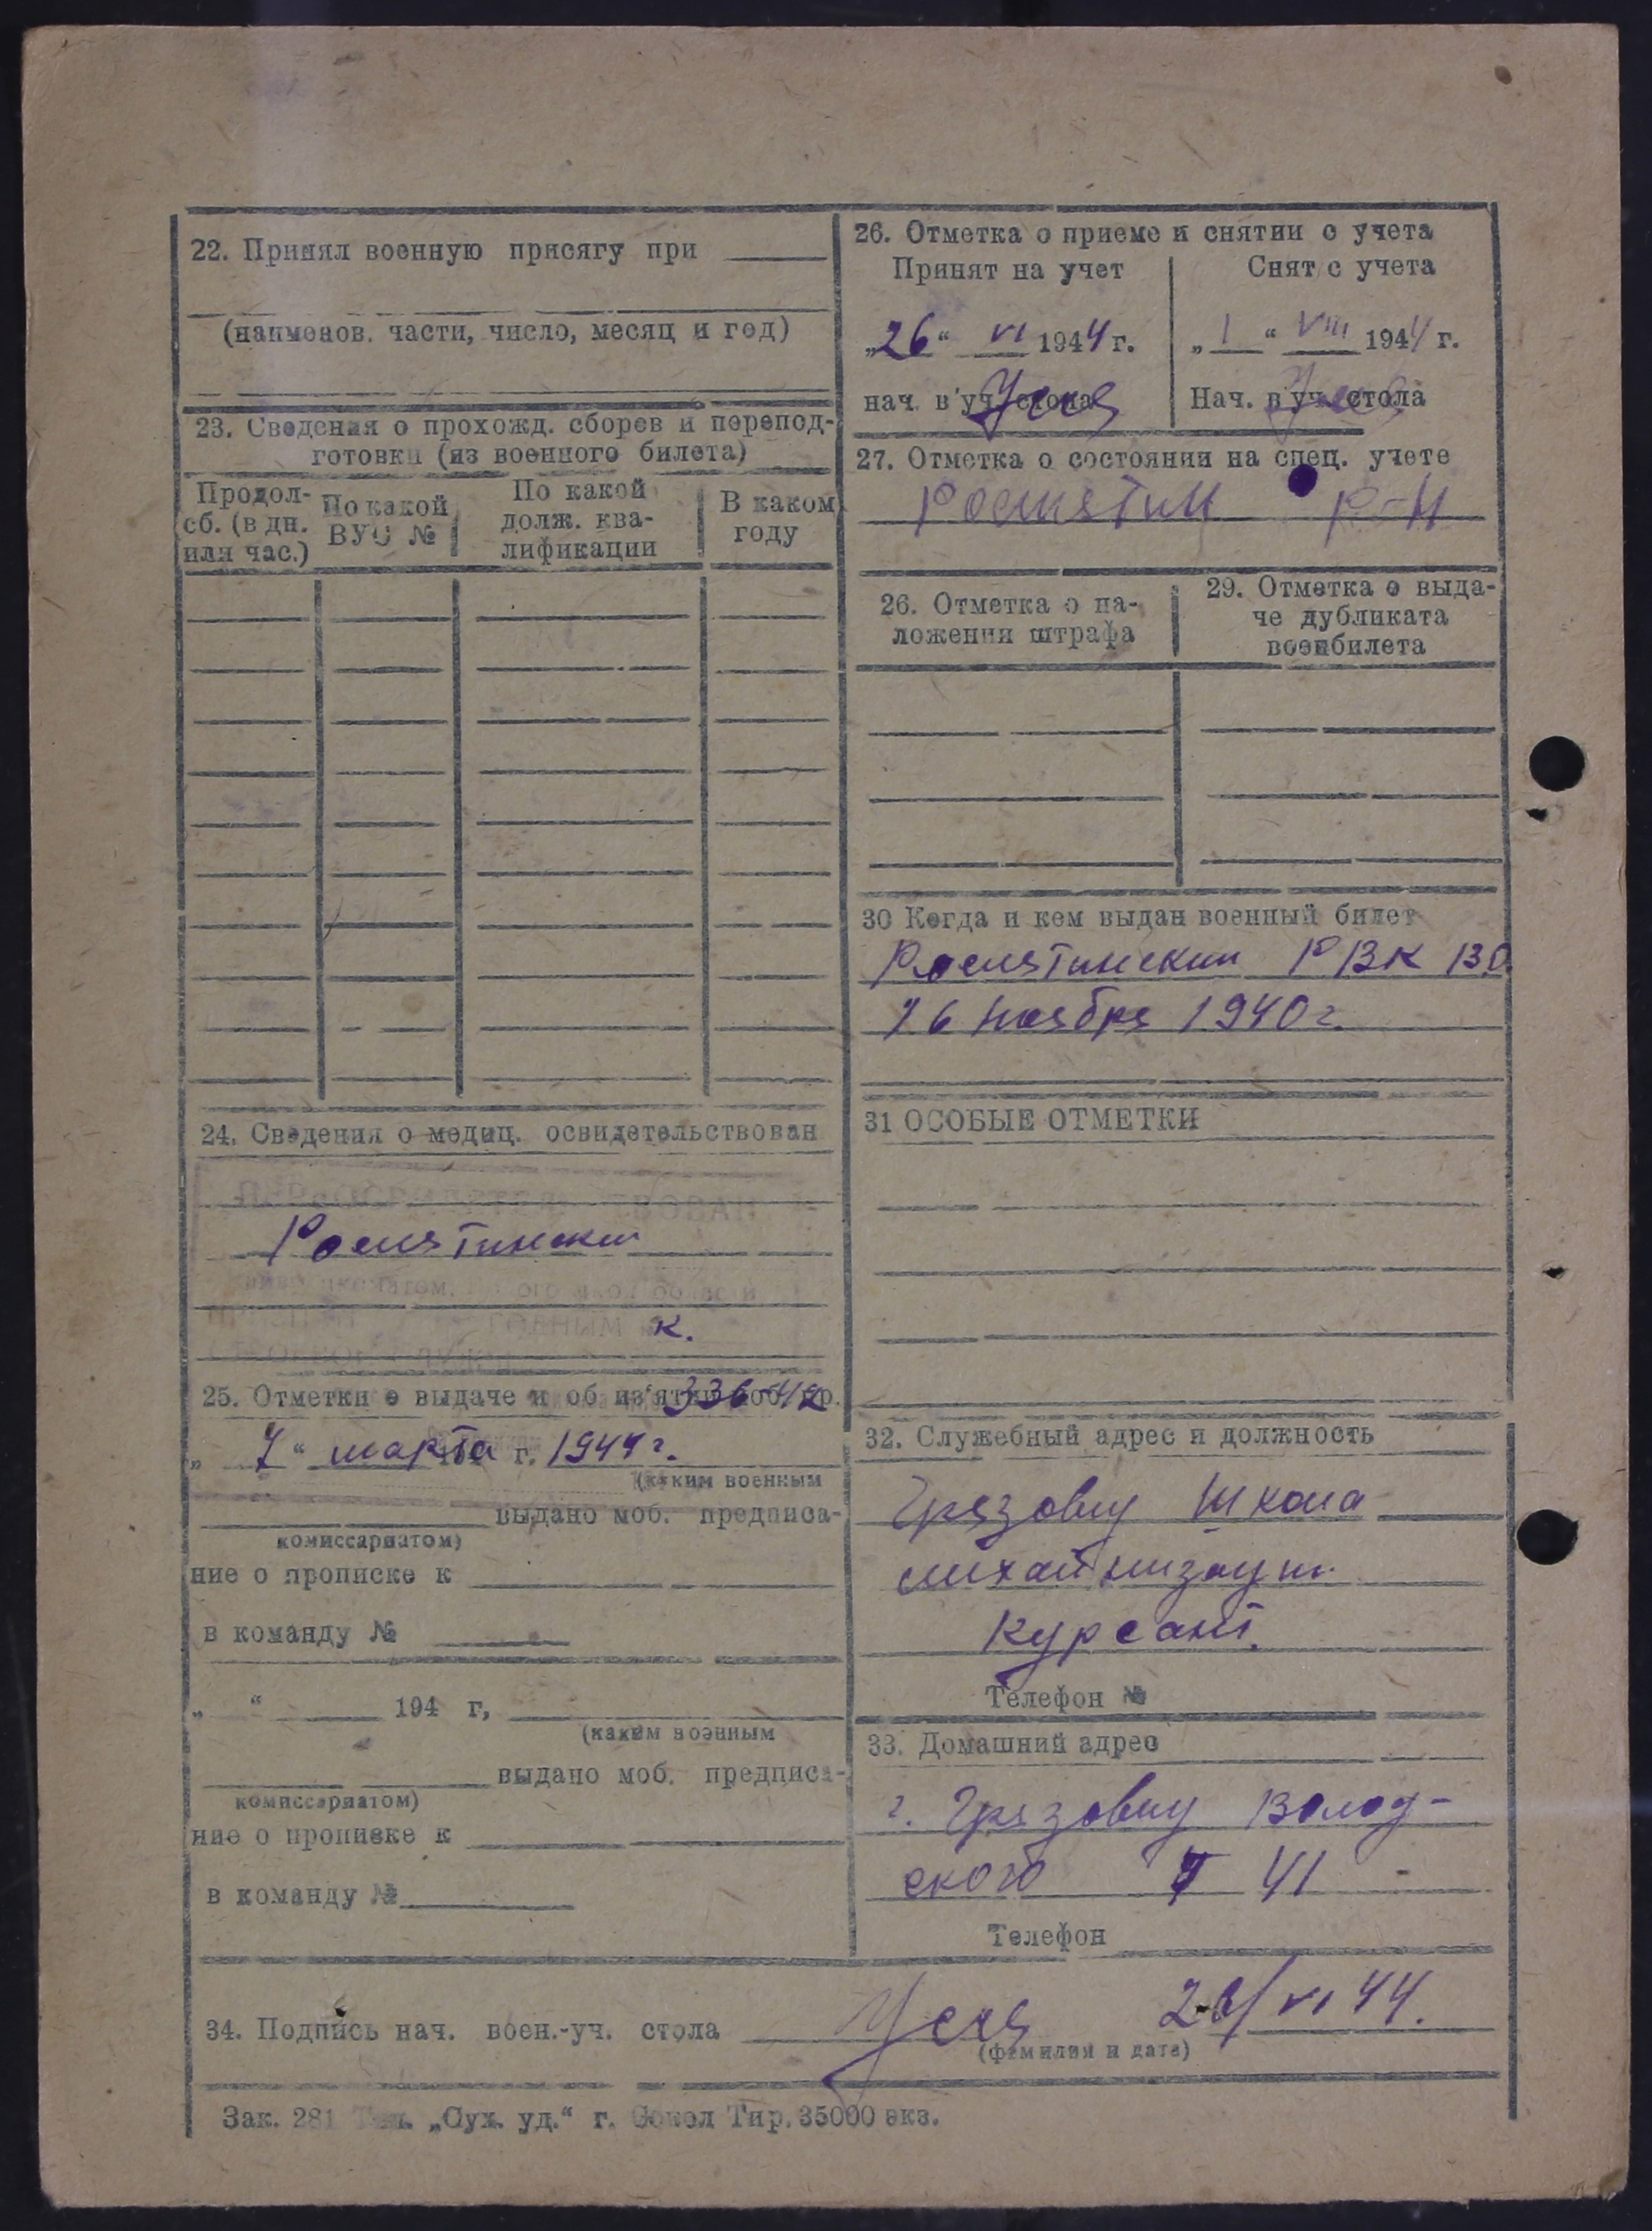 22. Принял военную присягу при
(наименов. части, число, месяц и год)
23. Сведения о прохожд. сборов и перепод-
готовки (из военного билета)
Продол-
сб. (в дн.
или час.)
По какой
ВУС №
По какой
долж. ква-
лификации
В каком
году
24. Сведения о медиц. освидетельствован
Рослятинский
к.
25. Отметки о выдаче и об из'ятии моб. пр.
336-42
„ 7 “ марта г. 1944 г.
(каким военным
выдано моб. предписа-
комиссариатом)
ние о прописке к
в команду №
„ “ 194 г,
(каким военным
выдано моб. предписа-
комиссариатом)
ние о прописке к
в команду №
26. Отметка о приеме и снятии с учета
Принят на учет
Снят с учета
„26“ VI 1944 г.
„ 1 “ VIII 1944 г.
нач. в уч. стола
Нач. в уч. стола
27. Отметка о состоянии на спец. учете
Рослятин р-н
26. Отметка о на-
ложения штрафа
29. Отметка о выда-
че дубликата
военбилета
30 Когда и кем выдан военный билет
Рослятинским РВК В.О.
26 ноября 1940 г.
31 ОСОБЫЕ ОТМЕТКИ
32. Служебный адрес и должность
Грязовец школа
механизац.
Курсант.
Телефон №
33. Домашний адрес
г. Грязовец Волог-
ского 41
Телефон
34. Подпись нач. воен.-уч. стола 26/VI 44.
(фамилия и дата)
Зак. 281 Тип. „Сух. уд.“ г. Сокол Тир. 35000 экз.